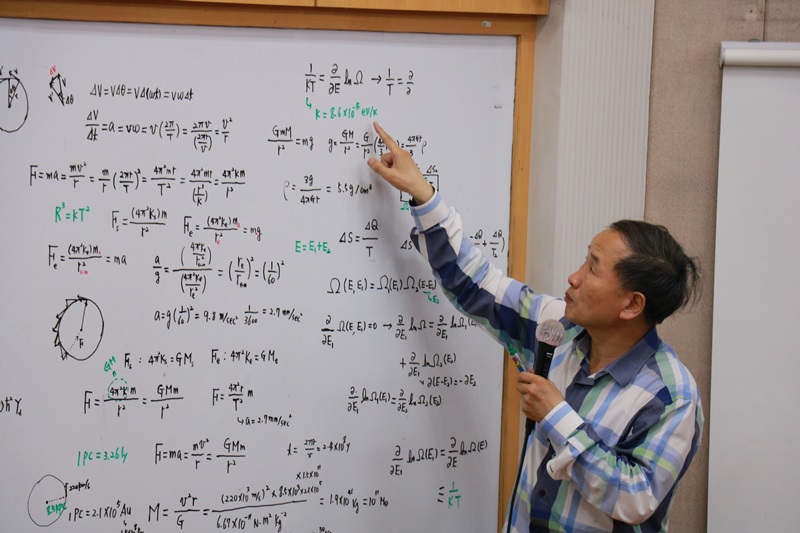 ΔV = VΔθ = VΔ(ωt) = VωΔt
ΔV/Δt = a = vω = v(2π/T) = 2πv/(2πr/v) = v²/r
F = ma = mv²/r = m/r (2πr/T)² = 4π²mr/T² = 4π²mr/(r³/K) = 4π²Km/r²
R³ = KT²
Fs = (4π²Ks)m/r²
Fe = (4π²Ke)m/r² = mg
Fe = (4π²Ke)m/r² = ma
a/g = (1/60)²
a = g(1/60)² = 9.8 m/sec² 1/3600 = 2.7 mm/sec²
Fs : 4π²Ks = GMs Fe : 4π²Ke = GMe
GM
F = (4π²K)m/r² = GMm/r²
F = 4π²r/T² m
↳ a = 2.7 mm/sec²
1PC = 3.26ly
F = ma = mv²/r = GMm/r²
t = 2πr/v = 2.4×10⁸y
220km/s
1PC = 2.1×10⁵Au
M = v²r/G = (220×10³m/s)² × 8.5×10³×2.1×10⁵ ×1.5×10¹¹ / 6.67×10⁻¹¹ N·m²kg⁻² = 1.9×10⁴¹ kg = 10¹¹ M₀
1/KT = ∂/∂E lnΩ → 1/T = ∂/∂
↳ K = 8.6×10⁻⁵ eV/K
GmM/r² = mg
g = GM/r² = G/r²
ρ = 3g/4πGr = 5.5g/cm³
E = E₁+E₂
ΔS = ΔQ/T
ΔS
Ω(E,E₁) = Ω₁(E₁)Ω₂(E-E₁)
↳E₂
∂/∂E₁ Ω(E,E₁) = 0 → ∂/∂E₁ lnΩ = ∂/∂E₁ lnΩ₁(E₁)
+ ∂/∂E₁ lnΩ₂(E₂)
↳ ∂(E-E₁) = -∂E₂
∂/∂E₁ lnΩ₁(E₁) = ∂/∂E₂ lnΩ₂(E₂)
∂/∂E₁ lnΩ(E₁) = ∂/∂E lnΩ(E)
≡ 1/KT